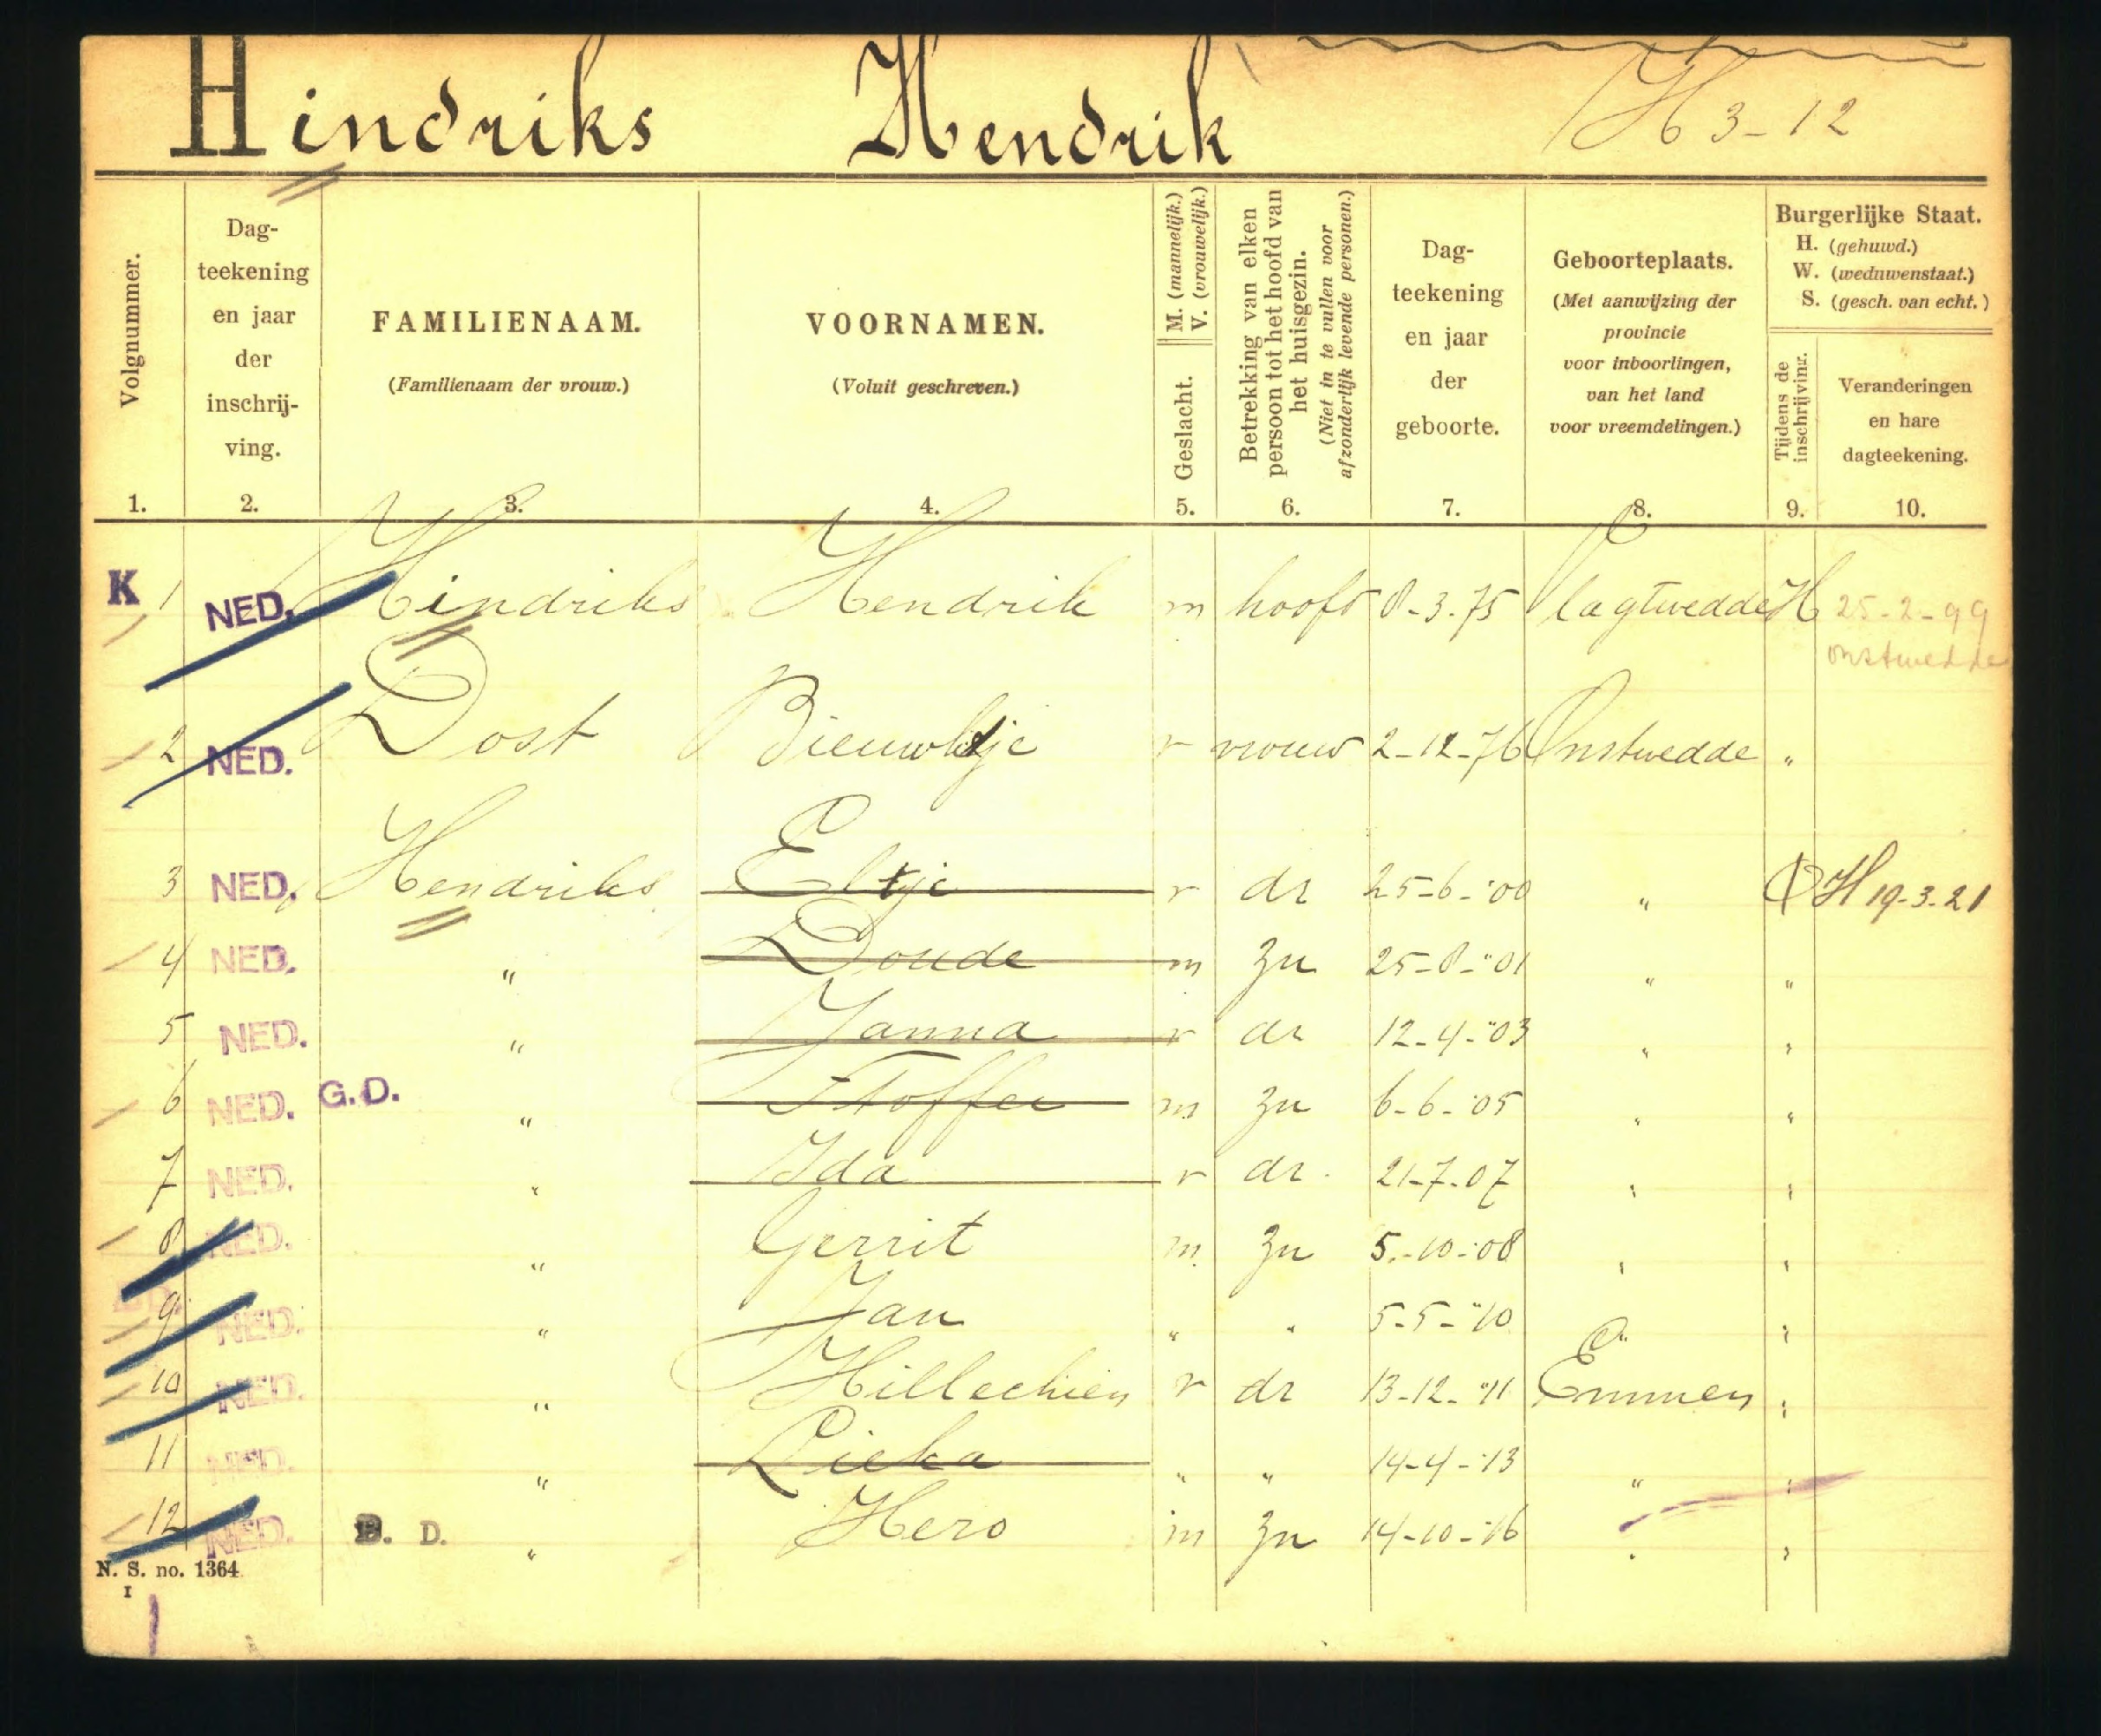 Hindriks Hendrik H 3-12
Volgnummer.
1.
Dag-
teekening
en jaar
der
inschrij-
ving.
2.
FAMILIENAAM.
(Familienaam der vrouw.)
3.
VOORNAMEN.
(Voluit geschreven.)
4.
Geslacht. M. (mannelijk.)
V. (vrouwelijk.)
5.
Betrekking van elken
persoon tot het hoofd van
het huisgezin.
(Niet in te vullen voor
afzonderlijk levende personen.)
6.
Dag-
teekening
en jaar
der
geboorte.
7.
Geboorteplaats.
(Met aanwijzing der
provincie
voor inboorlingen,
van het land
voor vreemdelingen.)
8.
Burgerlijke Staat.
H. (gehuwd.)
W. (weduwenstaat.)
S. (gesch. van echt.)
Tijdens de
inschrijving.
9.
Veranderingen
en hare
dagteekening.
10.
K 1 NED. Hindriks Hendrik m hooft 8-3-75 Vlagtwedde H 25-2-99
Onstwedde
2 NED. Dost v vrouw 2-12-76 Onstwedde "
3 NED. Hendriks Eltje v dr 25-6-'00 " H 19-3-21
4 NED. " Doude m zn 25-8-"01 " "
5 NED. " Janna v dr 12-4-"03 " "
6 NED. G.D. " Stoffer m zn 6-6-'05 " "
7 NED. " Ida v dr. 21-7-07 " "
8 NED. " Gerrit m zn 5-10-'08 " "
9 NED. " Jan " " 5-5-"10 " "
10 NED. " Hillechien v dr 13-12-"11 Emmen "
11 NED. " Lieka " " 14-4-'13 " "
12 NED. B. D. " Hero m zn 14-10-'16 " "
N. S. no. 1364
I